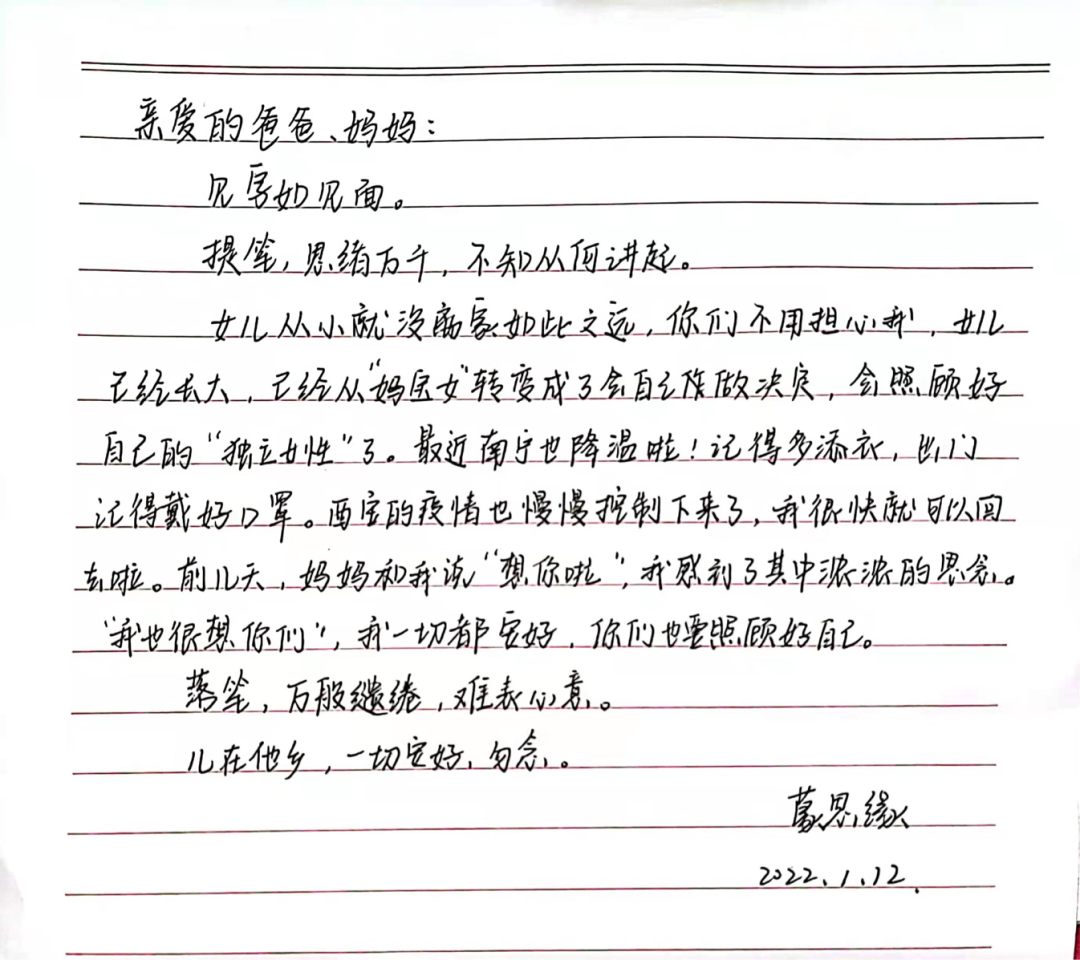 亲爱的爸爸、妈妈：
见字如见面。
提笔，思绪万千，不知从何讲起。
女儿从小就没离家如此之远，你们不用担心我，女儿
已经长大，已经从“妈宝女”转变成了会自己作做决定，会照顾好
自己的“独立女性”了。最近南宁也降温啦！记得多添衣，出门
记得戴好口罩。西安的疫情也慢慢控制下来了，我很快就可以回
去啦。前几天，妈妈和我说“想你啦”，我感到了其中浓浓的思念。
“我也很想你们”，我一切都安好，你们也要照顾好自己。
落笔，万般缱绻，难表心意。
儿在他乡，一切安好，勿念。
蒙思缘
2022.1.12.